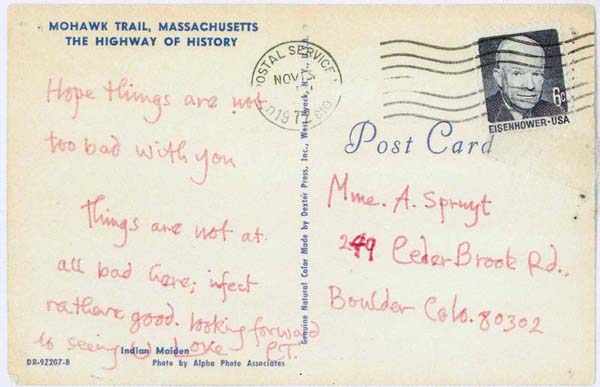 MOHAWK TRAIL, MASSACHUSETTS
THE HIGHWAY OF HISTORY
Hope things are not
too bad with you
Things are not at
all bad here; infect
rathere good. looking forward
to seeing U Love P.T.
Indian Maiden
DR-9Z207-B
Photo by Alpha Photo Associates
Genuine Natural Color Made by Dexter Press, Inc., West Nyack, N. Y., U.S.A.
POSTAL SERVICE
NOV
197
6¢
EISENHOWER·USA
Post Card
Mme. A. Spruyt
249 CederBrook Rd.,
Boulder Colo. 80302